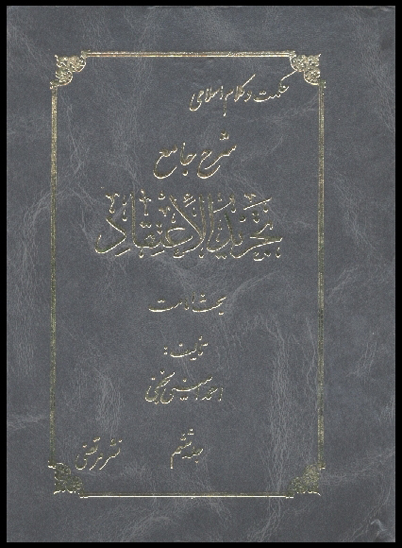 حکمت و کلام اسلامی
شرح جامع
تجرید الإعتقاد
بحث امامت
تألیف:
احمد امینی نجفی
جلد ششم
نشر مرتضی